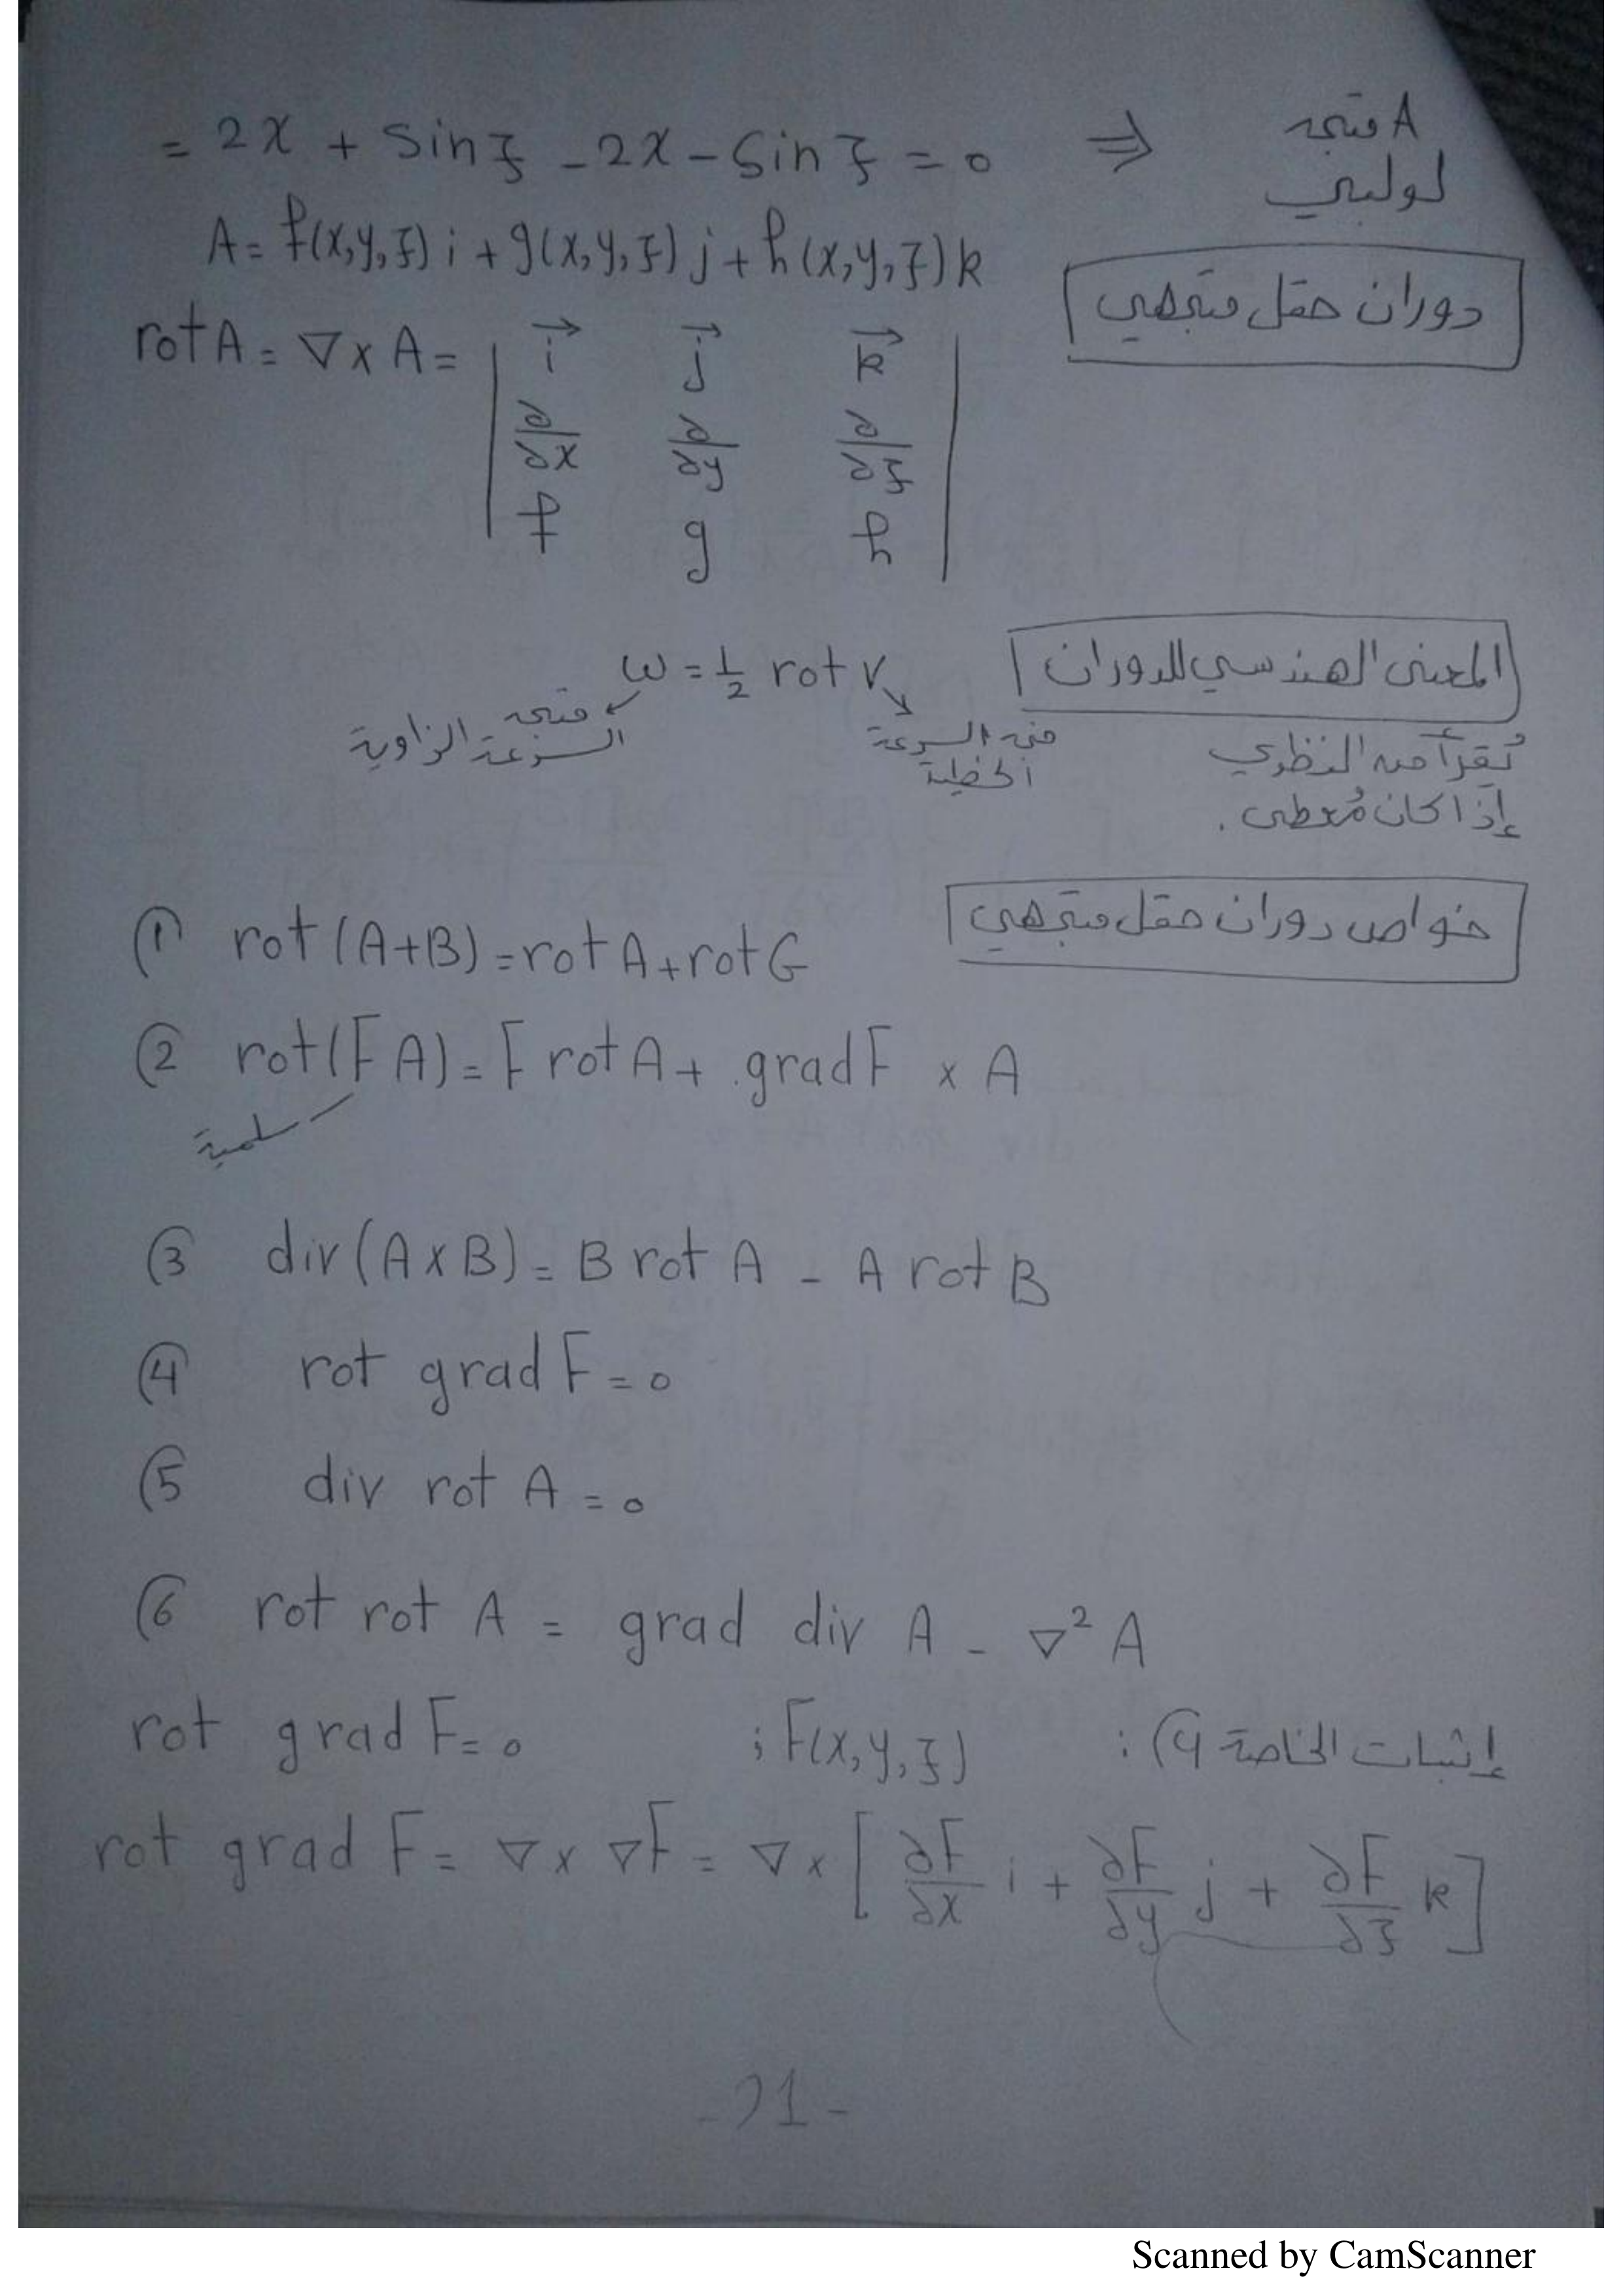 = 2x + sin z - 2x - sin z = 0 ⇒ A متجه
لولبي
A = f(x,y,z) i + g(x,y,z) j + h(x,y,z) k
دوران حقل متجهي
rot A = ∇ x A = | i⃗ j⃗ k⃗ |
∂/∂x ∂/∂y ∂/∂z
f g h
المعنى الهندسي للدوران
ω = 1/2 rot v
متجه السرعة الزاوية
متجه السرعة الخطية
تُقرأ من النظري
إذا كان مُعطى.
خواص دوران حقل متجهي
① rot (A+B) = rot A + rot G
② rot (F A) = F rot A + grad F x A
سلمية
③ div (A x B) = B rot A - A rot B
④ rot grad F = 0
⑤ div rot A = 0
⑥ rot rot A = grad div A - ∇² A
إثبات الخاصة 4) :
rot grad F = 0 ; F(x,y,z)
rot grad F = ∇ x ∇F = ∇ x [ ∂F/∂x i + ∂F/∂y j + ∂F/∂z k ]
- 21 -
Scanned by CamScanner